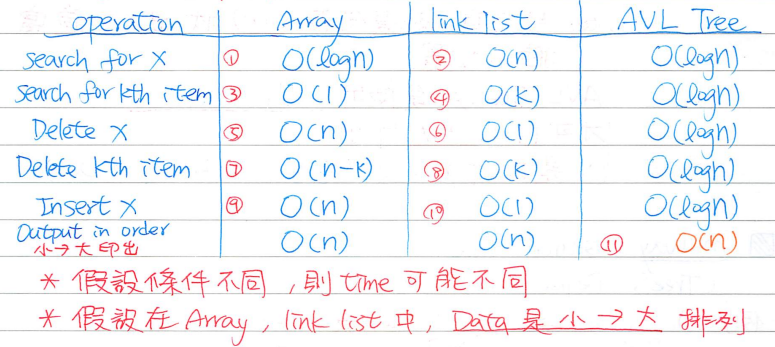 operation Array link list AVL Tree
search for X ① O(logn) ② O(n) O(logn)
search for kth item ③ O(1) ④ O(k) O(logn)
Delete X ⑤ O(n) ⑥ O(1) O(logn)
Delete kth item ⑦ O(n-k) ⑧ O(k) O(logn)
Insert X ⑨ O(n) ⑩ O(1) O(logn)
Output in order O(n) O(n) ⑪ O(n)
小→大印出
* 假設條件不同,則 time 可能不同
* 假設在 Array, link list 中, Data 是 小→大 排列